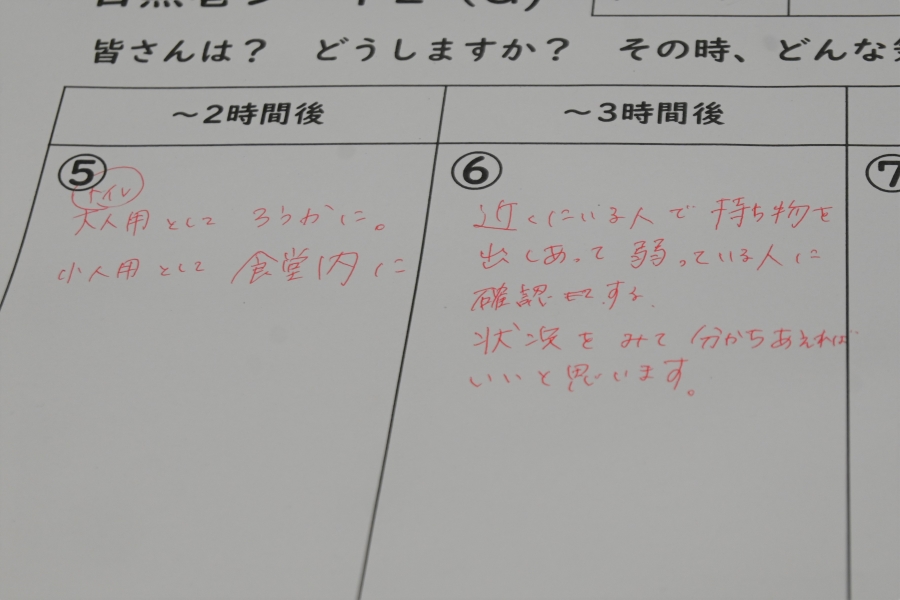 皆さんは？　どうしますか？　その時、どんな
～2時間後
～3時間後
⑤
トイレ
大人用として ろうかに。
小人用として 食堂内に
⑥
近くにいる人で持ち物を
出しあって弱っている人に
確認する.
状況をみて分かちあえれば
いいと思います。
⑦